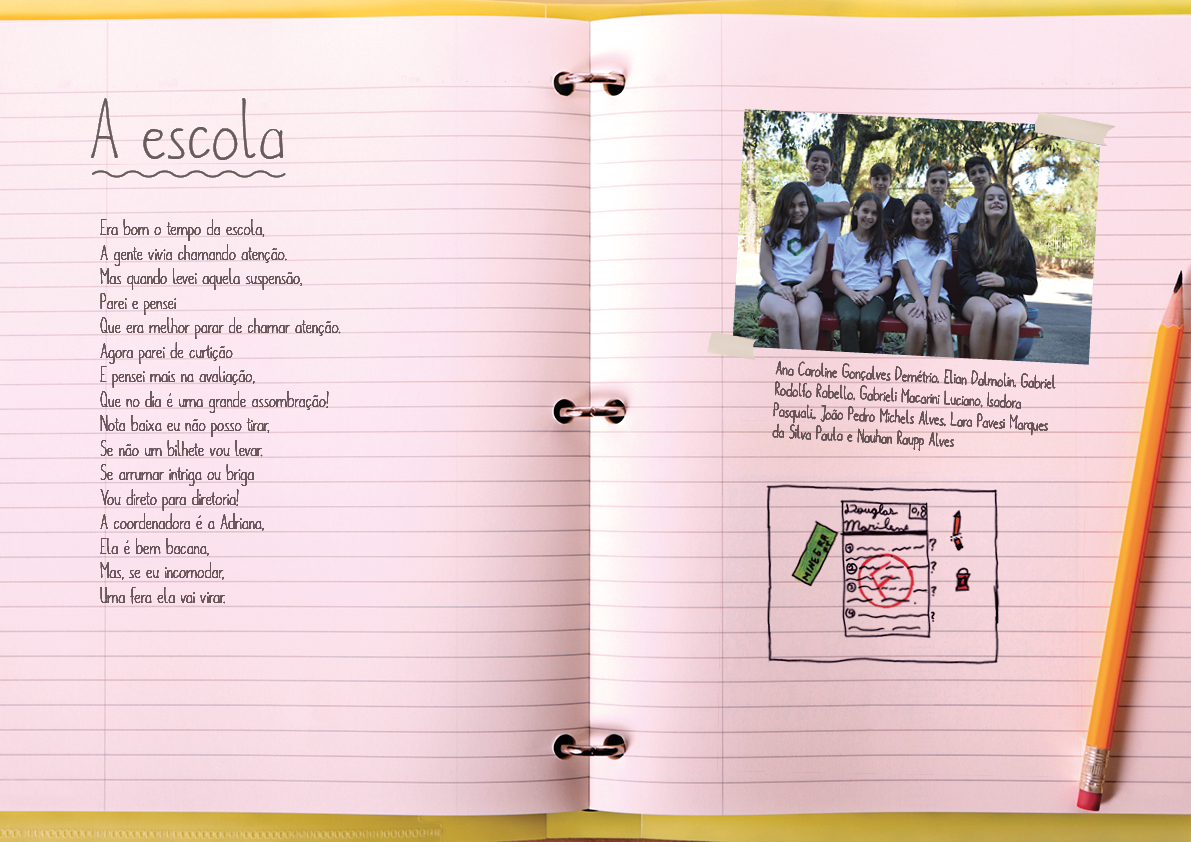 A escola
Era bom o tempo da escola,
A gente vivia chamando atenção.
Mas quando levei aquela suspensão,
Parei e pensei
Que era melhor parar de chamar atenção.
Agora parei de curtição
E pensei mais na avaliação,
Que no dia é uma grande assombração!
Nota baixa eu não posso tirar,
Se não um bilhete vou levar.
Se arrumar intriga ou briga
Vou direto para diretoria!
A coordenadora é a Adriana,
Ela é bem bacana,
Mas, se eu incomodar,
Uma fera ela vai virar.
Ana Caroline Gonçalves Demétrio, Elian Dalmolin, Gabriel
Rodolfo Rabello, Gabrieli Macarini Luciano, Isadora
Pasquali, João Pedro Michels Alves, Lara Pavesi Marques
da Silva Paulo e Nauhan Raupp Alves
Douglas 0,8
Marilene
?
?
F
?
?